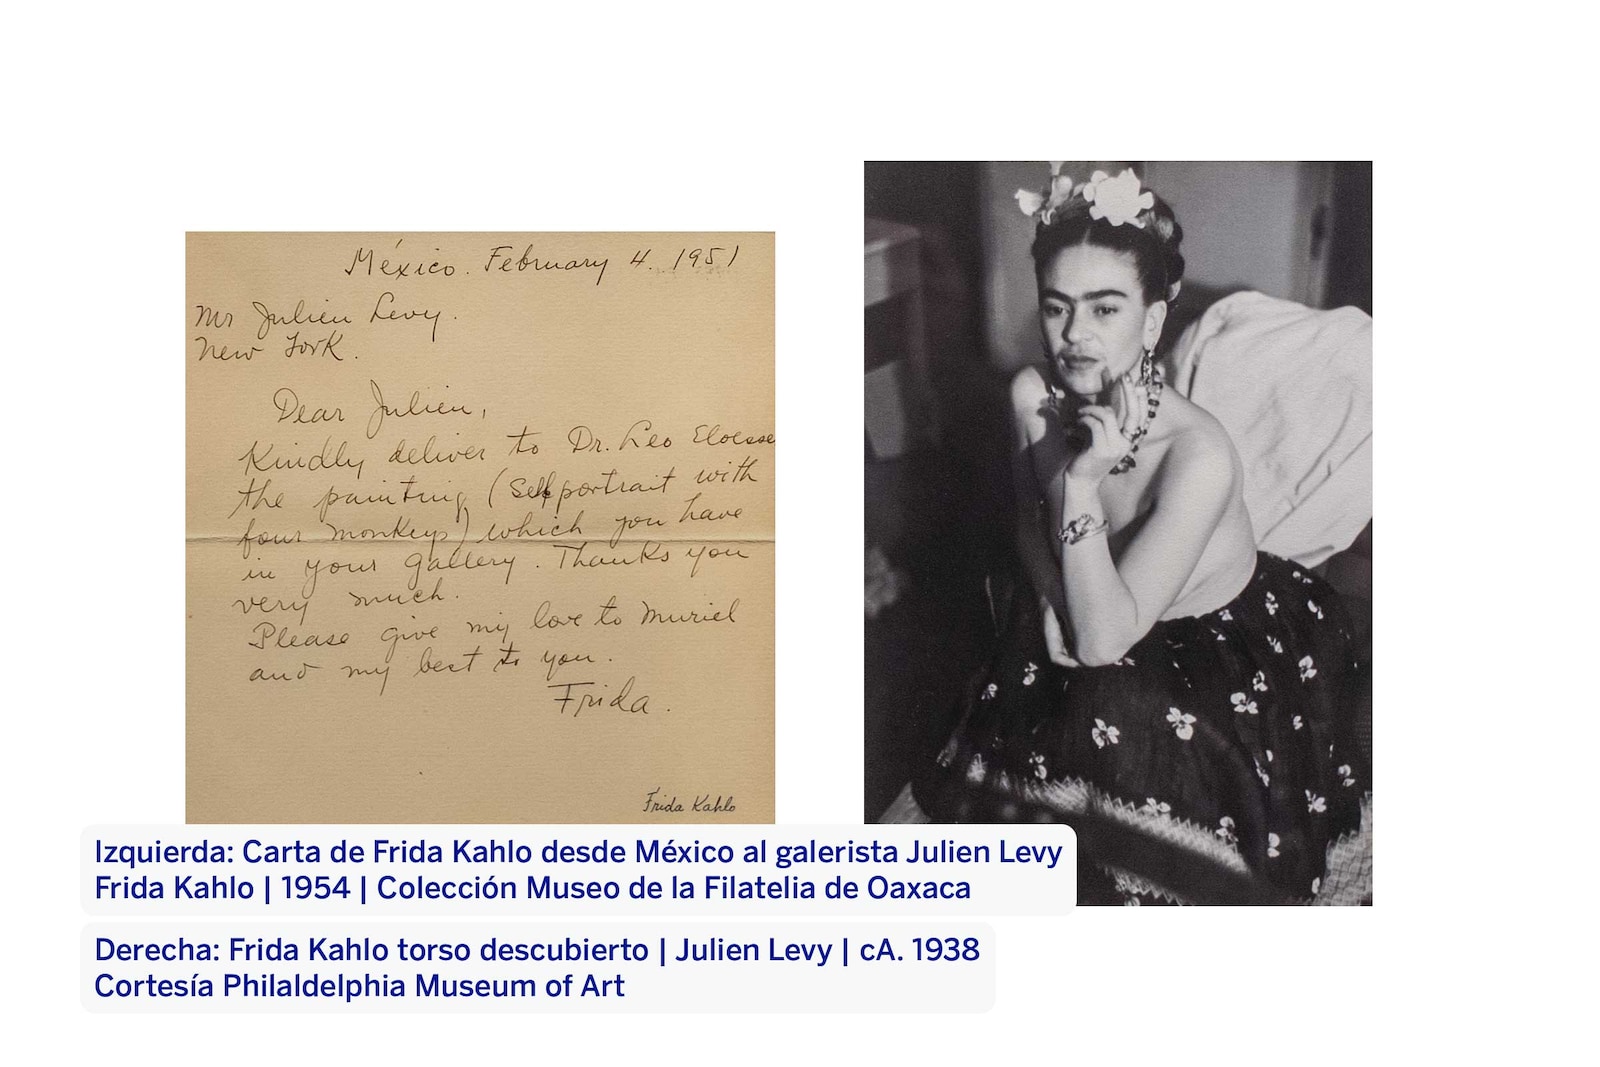 México. February 4. 1951
Mr Julien Levy.
New York.
Dear Julien,
Kindly deliver to Dr. Leo Eloesse
the painting (selfportrait with
four monkeys) which you have
in your gallery. Thanks you
very much.
Please give my love to Muriel
and my best to you.
Frida.
Frida Kahlo
Izquierda: Carta de Frida Kahlo desde México al galerista Julien Levy
Frida Kahlo | 1954 | Colección Museo de la Filatelia de Oaxaca
Derecha: Frida Kahlo torso descubierto | Julien Levy | cA. 1938
Cortesía Philaldelphia Museum of Art